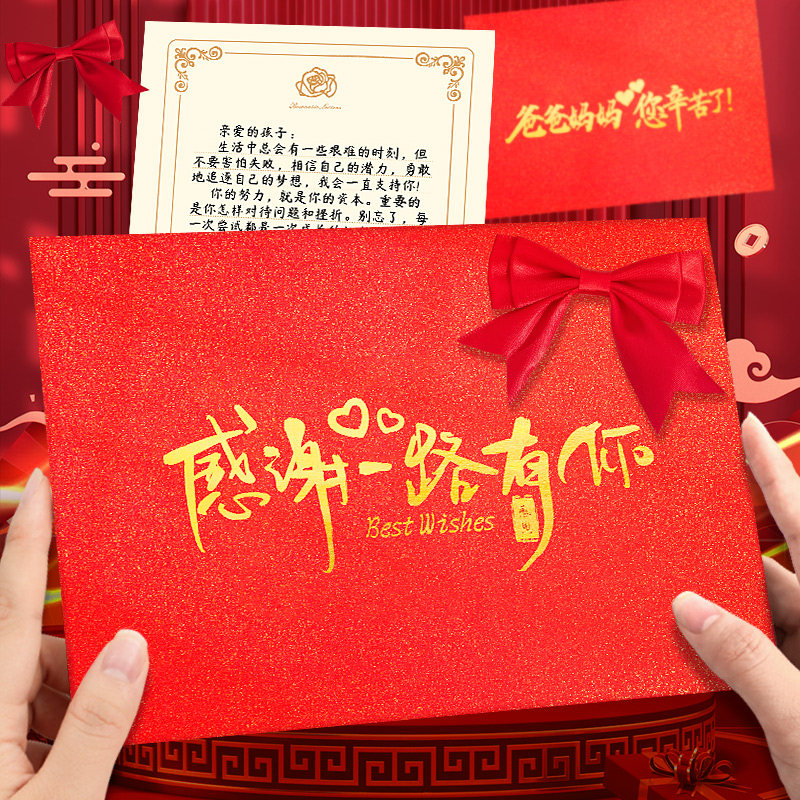 亲爱的孩子：
生活中总会有一些艰难的时刻，但
不要害怕失败，相信自己的潜力，勇敢
地追逐自己的梦想，我会一直支持你！
你的努力，就是你的资本。重要的
是你怎样对待问题和挫折。别忘了，每
一次尝试都是一次
爸爸妈妈您辛苦了！
感谢一路有你
Best Wishes